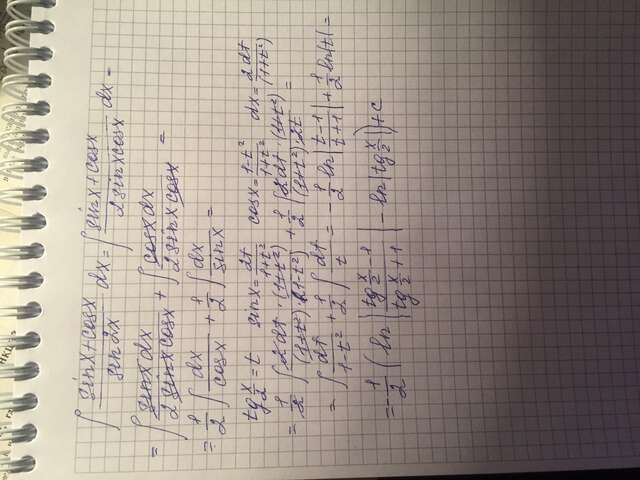 ∫ (sinx+cosx)/(sin2x) dx = ∫ (sinx+cosx)/(2sinxcosx) dx =
= ∫ (sinx dx)/(2sinxcosx) + ∫ (cosx dx)/(2sinxcosx) =
= 1/2 ∫ dx/cosx + 1/2 ∫ dx/sinx =
tg x/2 = t sinx = 2t/(1+t²) cosx = (1-t²)/(1+t²) dx = 2dt/(1+t²)
= 1/2 ∫ (2dt·(1+t²))/((1+t²)·(1-t²)) + 1/2 ∫ (2dt·(1+t²))/((1+t²)·2t) =
= ∫ dt/(1-t²) + 1/2 ∫ dt/t = -1/2 ln|(t-1)/(t+1)| + 1/2 ln|t| =
= -1/2 (ln|(tg x/2 -1)/(tg x/2 +1)| - ln|tg x/2|) + c